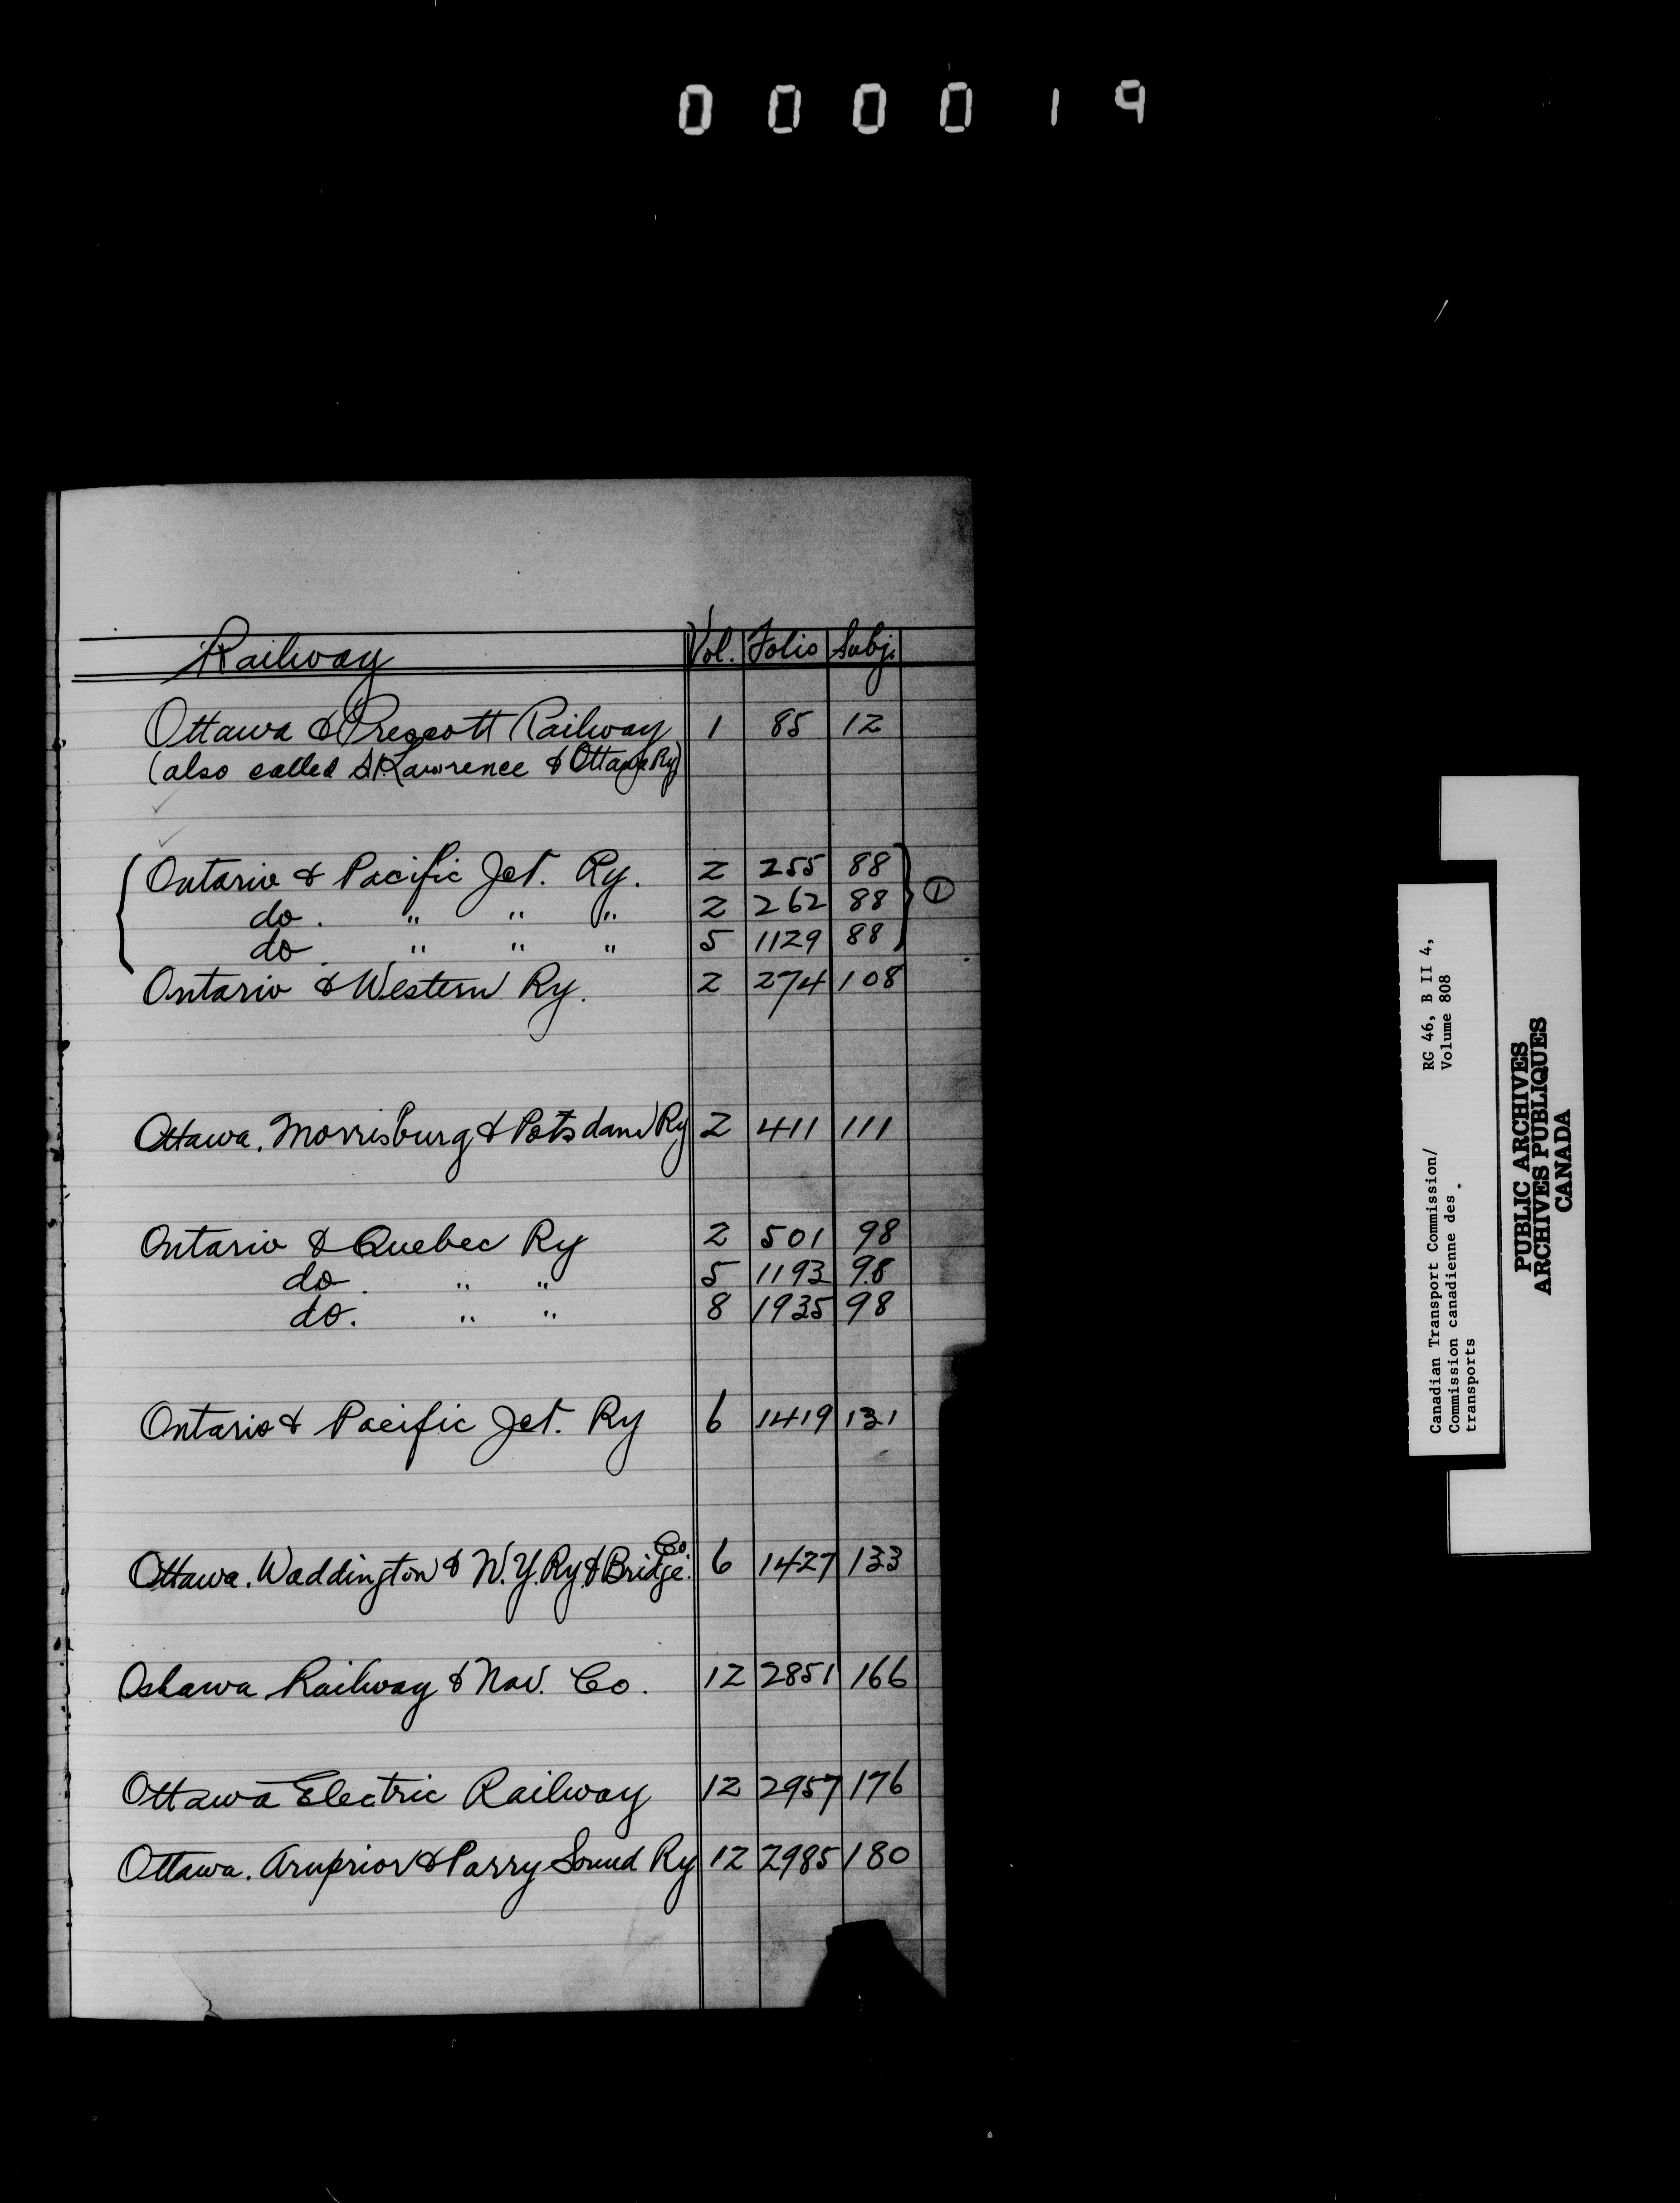 000019
Railway Vol. Folio Subj.
Ottawa & Prescott Railway 1 85 12
(also called St Lawrence & Ottawa Ry)
Ontario & Pacific Jct. Ry. 2 255 88
do. " " " 2 262 88 ①
do. " " " 5 1129 88
Ontario & Western Ry. 2 274 108
Ottawa, Morrisburg & Potsdam Ry 2 411 111
Ontario & Quebec Ry 2 501 98
do. " " 5 1193 98
do. " " 8 1935 98
Ontario & Pacific Jct. Ry 6 1419 131
Ottawa, Waddington & N.Y. Ry & Bridge Co. 6 1427 133
Oshawa Railway & Nav. Co. 12 2851 166
Ottawa Electric Railway 12 2957 176
Ottawa, Arnprior & Parry Sound Ry 12 2985 180
Canadian Transport Commission/ RG 46, B II 4,
Commission canadienne des Volume 808
transports
PUBLIC ARCHIVES
ARCHIVES PUBLIQUES
CANADA